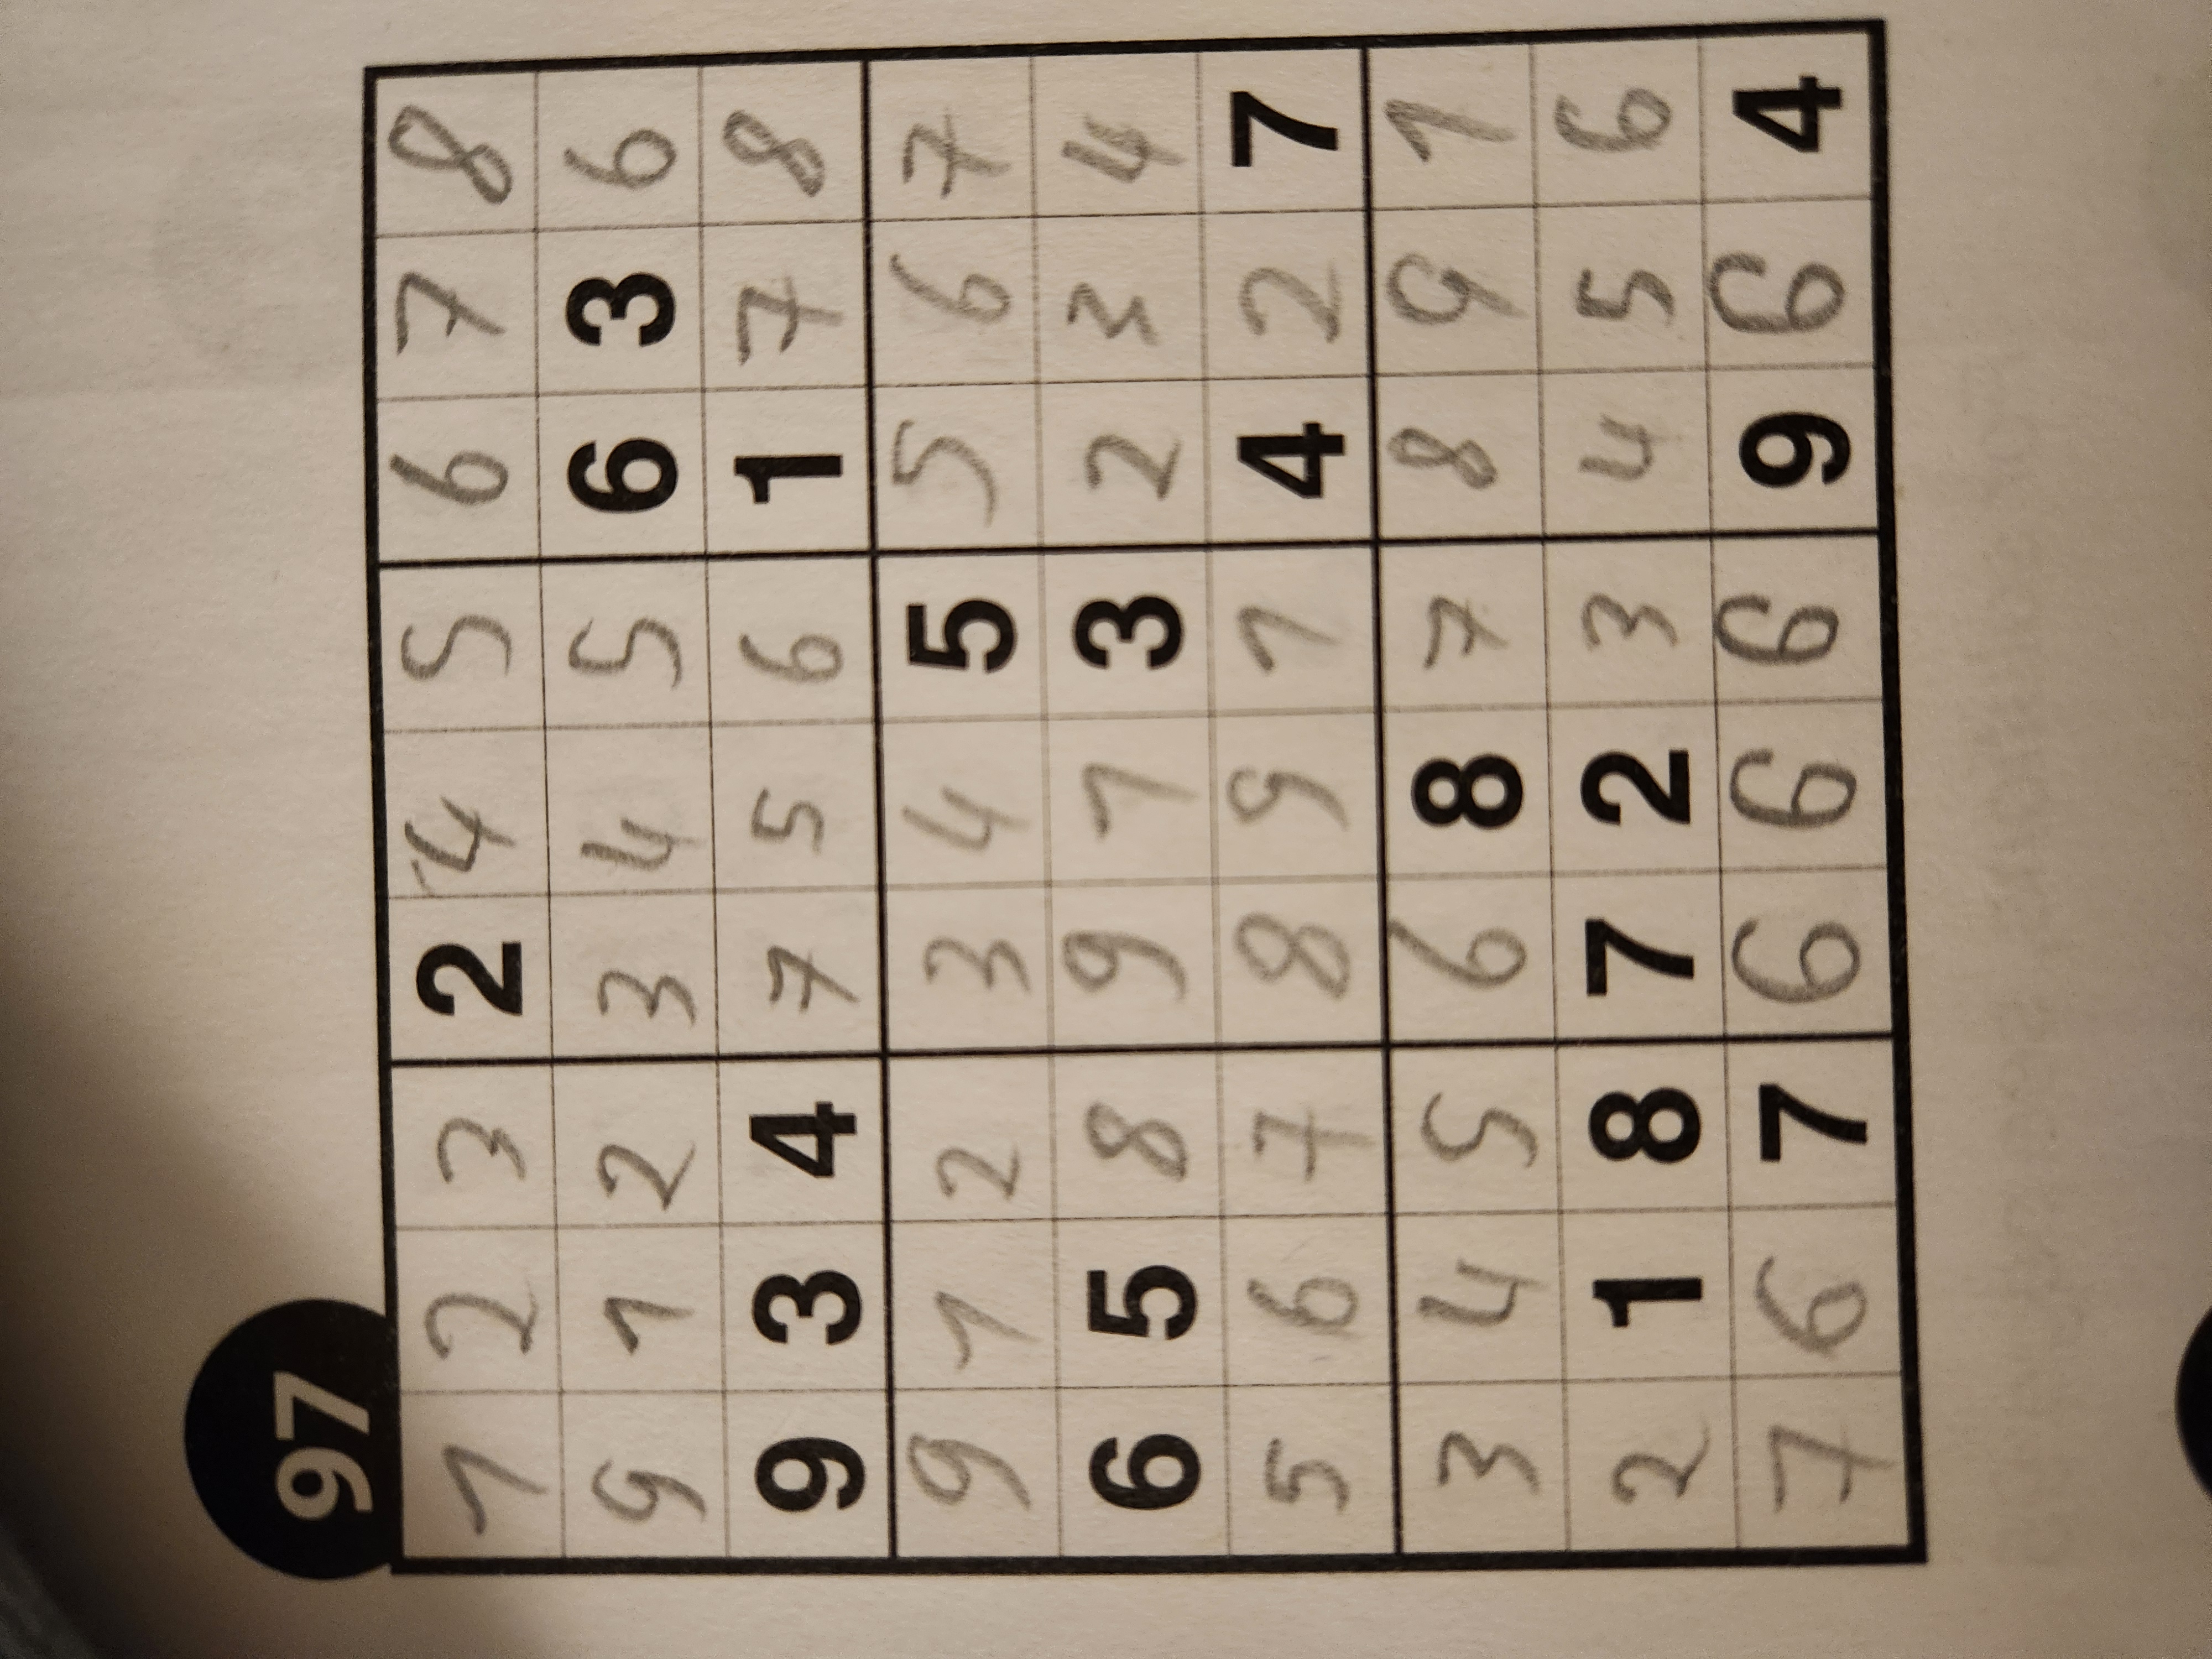 97
1 2 3 2 4 5 6 7 8
9 1 2 3 4 5 6 3 6
9 3 4 7 5 6 1 7 8
9 1 2 3 4 5 5 6 7
6 5 8 9 1 3 2 3 4
5 6 7 8 9 1 4 2 7
3 4 5 6 8 7 8 9 1
2 1 8 7 2 3 4 5 6
7 6 7 6 6 6 9 6 4